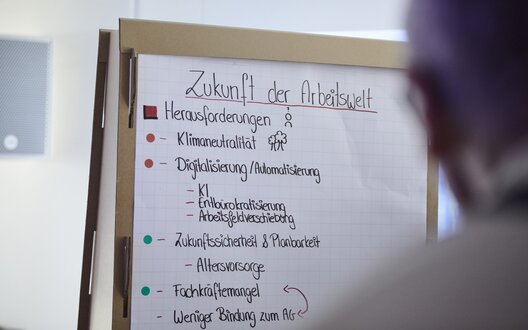 Zukunft der Arbeitswelt
Herausforderungen
- Klimaneutralität
- Digitalisierung/Automatisierung
- KI
- Entbürokratisierung
- Arbeitsfeldverschiebung
- Zukunftssicherheit & Planbarkeit
- Altersvorsorge
- Fachkräftemangel
- Weniger Bindung zum AG